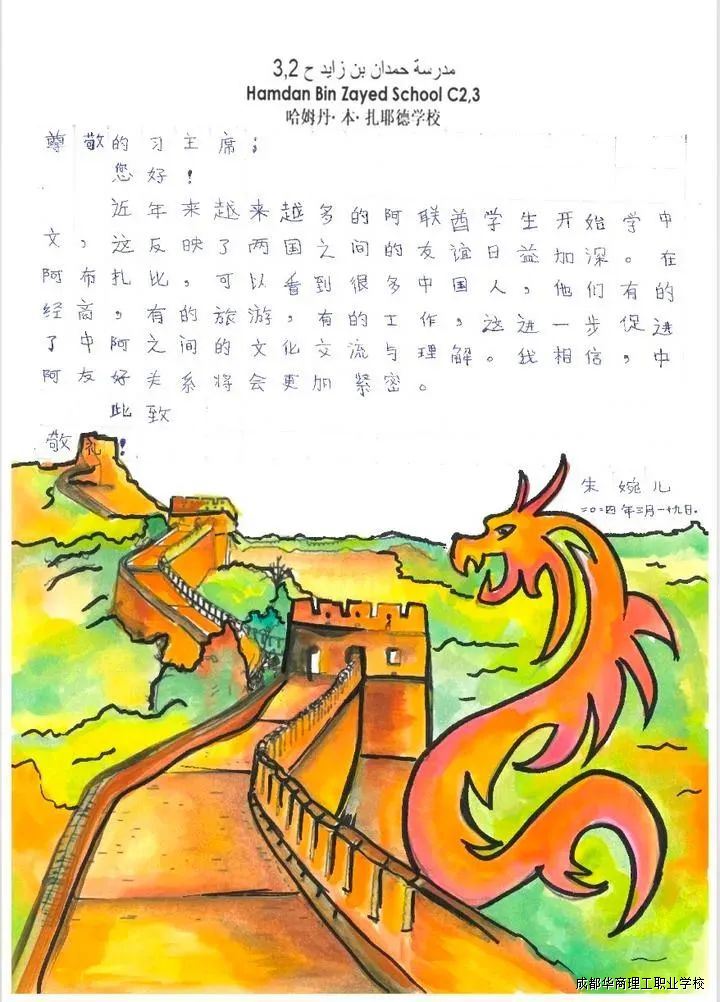 مدرسة حمدان بن زايد ح 3,2
Hamdan Bin Zayed School C2,3
哈姆丹·本·扎耶德学校
尊敬的习主席；
您好！
近年来越来越多的阿联酋学生开始学中
文，这反映了两国之间的友谊日益加深。在
阿布扎比，可以看到很多中国人，他们有的
经商，有的旅游，有的工作，这进一步促进
了中阿之间的文化交流与理解。我相信，中
阿友好关系将会更加紧密。
此致
敬礼！
朱婉儿
二〇二四年三月一十九日.
成都华商理工职业学校